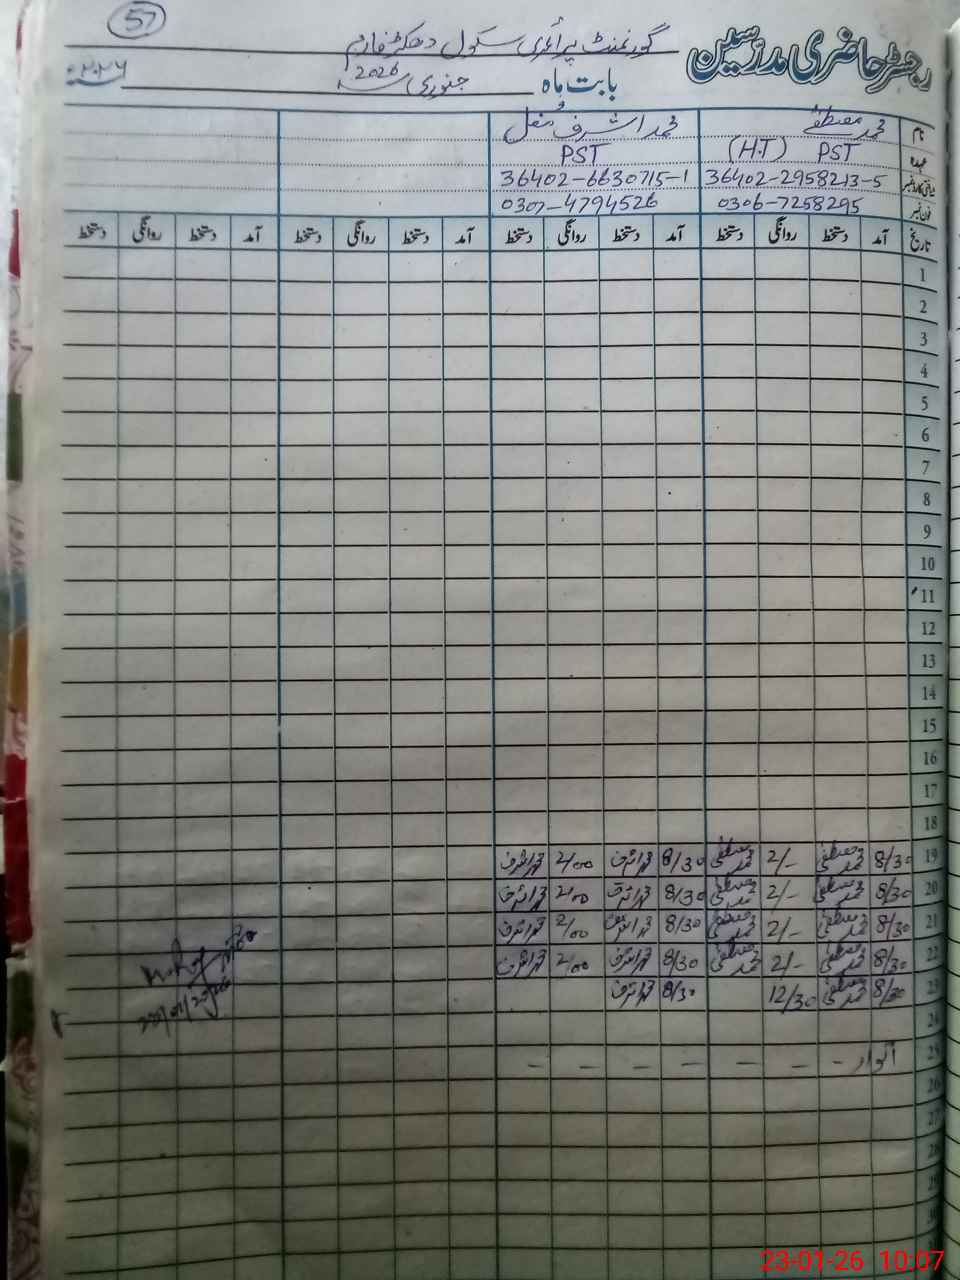 57
رجسٹر حاضری مدرسین گورنمنٹ پرائمری سکول دھکڑ فارم
بابت ماہ جنوری 2026 ۲۰۲۶ء
نام محمد مصطفیٰ محمد اشرف مغل
عہدہ PST (H.T) PST
شناختی کارڈ نمبر 36402-2958213-5 36402-6630715-1
فون نمبر 0306-7258295 0307-4794526
تاریخ آمد دستخط روانگی دستخط آمد دستخط روانگی دستخط آمد دستخط روانگی دستخط آمد دستخط روانگی دستخط
1
2
3
4
5
6
7
8
9
10
11
12
13
14
15
16
17
18
19 8/30 محمد مصطفیٰ 2/- محمد مصطفیٰ 8/30 محمد اشرف 2/00 محمد اشرف
20 8/30 محمد مصطفیٰ 2/- محمد مصطفیٰ 8/30 محمد اشرف 2/00 محمد اشرف
21 8/30 محمد مصطفیٰ 2/- محمد مصطفیٰ 8/30 محمد اشرف 2/00 محمد اشرف
22 8/30 محمد مصطفیٰ 2/- محمد مصطفیٰ 8/30 محمد اشرف 2/00 محمد اشرف
23 8/30 محمد مصطفیٰ 12/30 8/30 محمد اشرف
24
25 اتوار - - - - - - -
26
27
28
29
23-01-26 10:07